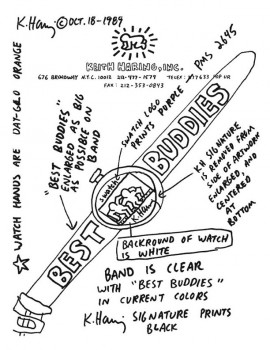 K. Haring © OCT. 18 - 1989
KEITH HARING, INC.
676 BROADWAY N.Y.C. 10012 212-477-1579
FAX: 212-353-0843
PMS 2645
☆ WATCH HANDS ARE DAY-GLO ORANGE
"BEST BUDDIES"
ENLARGED AS BIG
AS POSSIBLE ON
BAND
SWATCH LOGO
PRINTS PURPLE
BEST BUDDIES
swatch
K. Haring
KH SIGNATURE
IS REMOVED FROM
SIDE OF ARTWORK
ENLARGED, AND
CENTERED,
AT
BOTTOM
BACKROUND OF WATCH
IS WHITE
BAND IS CLEAR
WITH "BEST BUDDIES"
IN CURRENT COLORS
K. Haring SIGNATURE PRINTS
BLACK